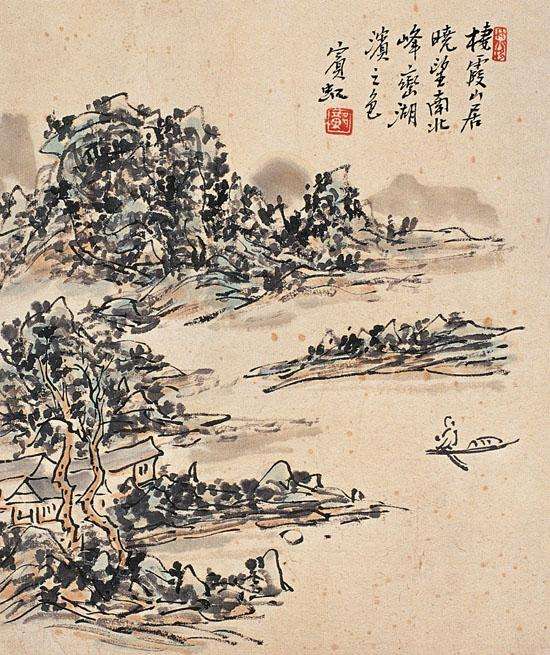 棲霞山居
曉望南北
峰巒湖
濱之色
賓虹